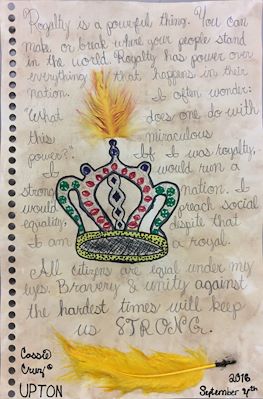 Royalty is a powerful thing. You can
make or break where your people stand
in the world. Royalty has power over
everything that happens in their
nation. I often wonder:
"What does one do with
this miraculous
power?" If I was royalty,
I would run a
strong nation. I
would preach social
equality, dispite that
I am a royal.
All citizens are equal under my
eyes. Bravery & unity against
the hardest times will keep
us STRONG.
Cassie
Cruz
UPTON
2016
September 4th